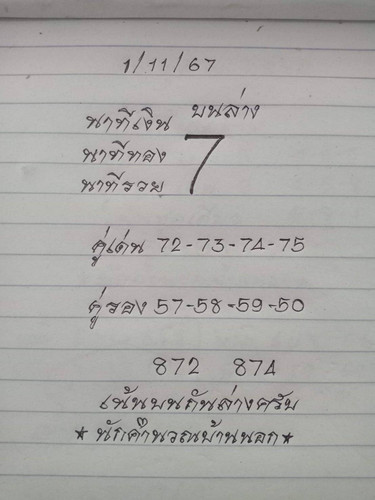 1/11/67
นาทีเงิน บนล่าง
นาทีทอง 7
นาทีรวย
คู่เด่น 72-73-74-75
คู่รอง 57-58-59-50
872 874
เน้นบนกันล่างครับ
★ นักคำนวณบ้านนอก ★